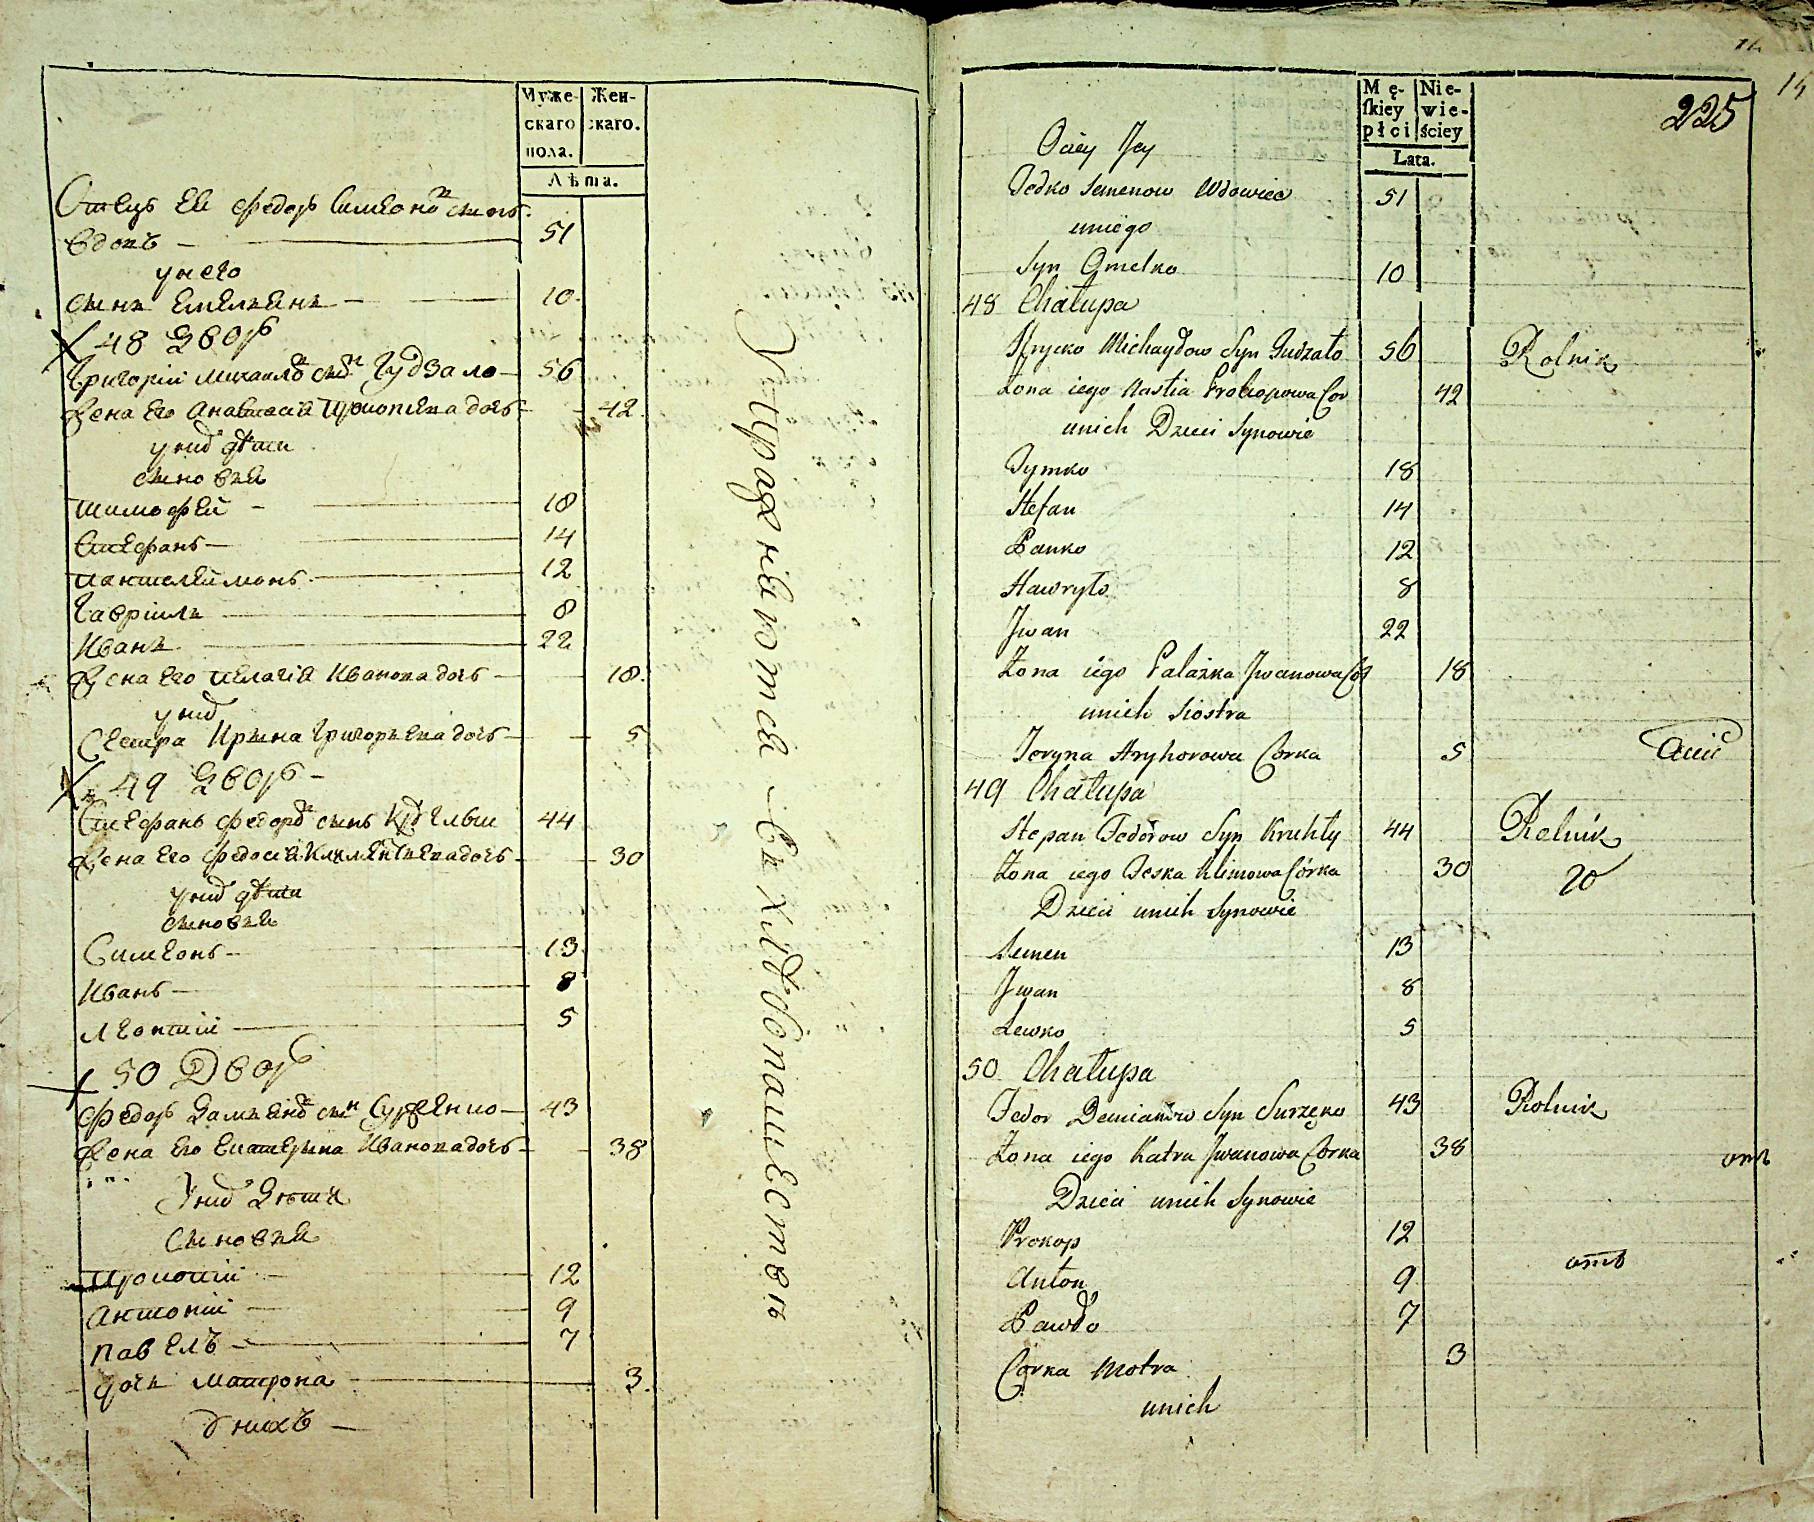 Муже-
скаго
пола.
Жен-
скаго.
Лѣта.
Отецъ Ея Федоръ Симеоновъ сынъ
вдовъ 51
у него
сынъ Емельянъ 10
48 Дворъ
Григорій Михайловъ сынъ Гудзало 56
Жена Его Анастасія Прокопьева дочь 42
у них дѣти
сыновья
Тимофей 18
Стефанъ 14
Пантелеймонъ 12
Гавріилъ 8
Иванъ 22
Жена Его Пелагія Иванова дочь 18
у них
Сестра Ирына Григорьева дочь 5
49 Дворъ
Стефанъ Федоровъ сынъ Круглый 44
Жена Его Федосія Климентьева дочь 30
у них дѣти
сыновья
Симеонъ 13
Иванъ 8
Леонтій 5
50 Дворъ
Федоръ Дамьяновъ сынъ 43
Жена Его Екатерына Иванова дочь 38
у них дѣти
сыновья
Прокопій 12
Антоній 9
Павелъ 7
дочь Матрона 3
у нихъ
Упражняются въ хлѣбопашествѣ
Mę-
skiey
płci
Nie-
wie-
ściey
Lata.
225
14
Ociey Jey
Fedko Semenow Wdowiec 51
uniego
Syn Omelko 10
48 Chałupa
Hrycko Michayłow Syn Gudzało 56 Rolnik
Żona iego Nastia Prokopowa Cor 42
unich Dzieci Synowie
Tymko 18
Stefan 14
Panko 12
Hawryło 8
Jwan 22
Żona iego Palażka Jwanowa Cor 18
unich Siostra
Jeryna Hryhorowa Corka 5
49 Chałupa
Stepan Fedorow Syn Kruhły 44 Rolnik
Żona iego Feska Klimowa Córka 30
Dzieci unich Synowie
Semen 13
Jwan 8
Lewko 5
50 Chałupa
Fedor Demianow Syn 43 Rolnik
Żona iego Katra Jwanowa Corka 38
Dzieci unich Synowie
Prokop 12
Anton 9
Pawło 7
Corka Motra 3
unich